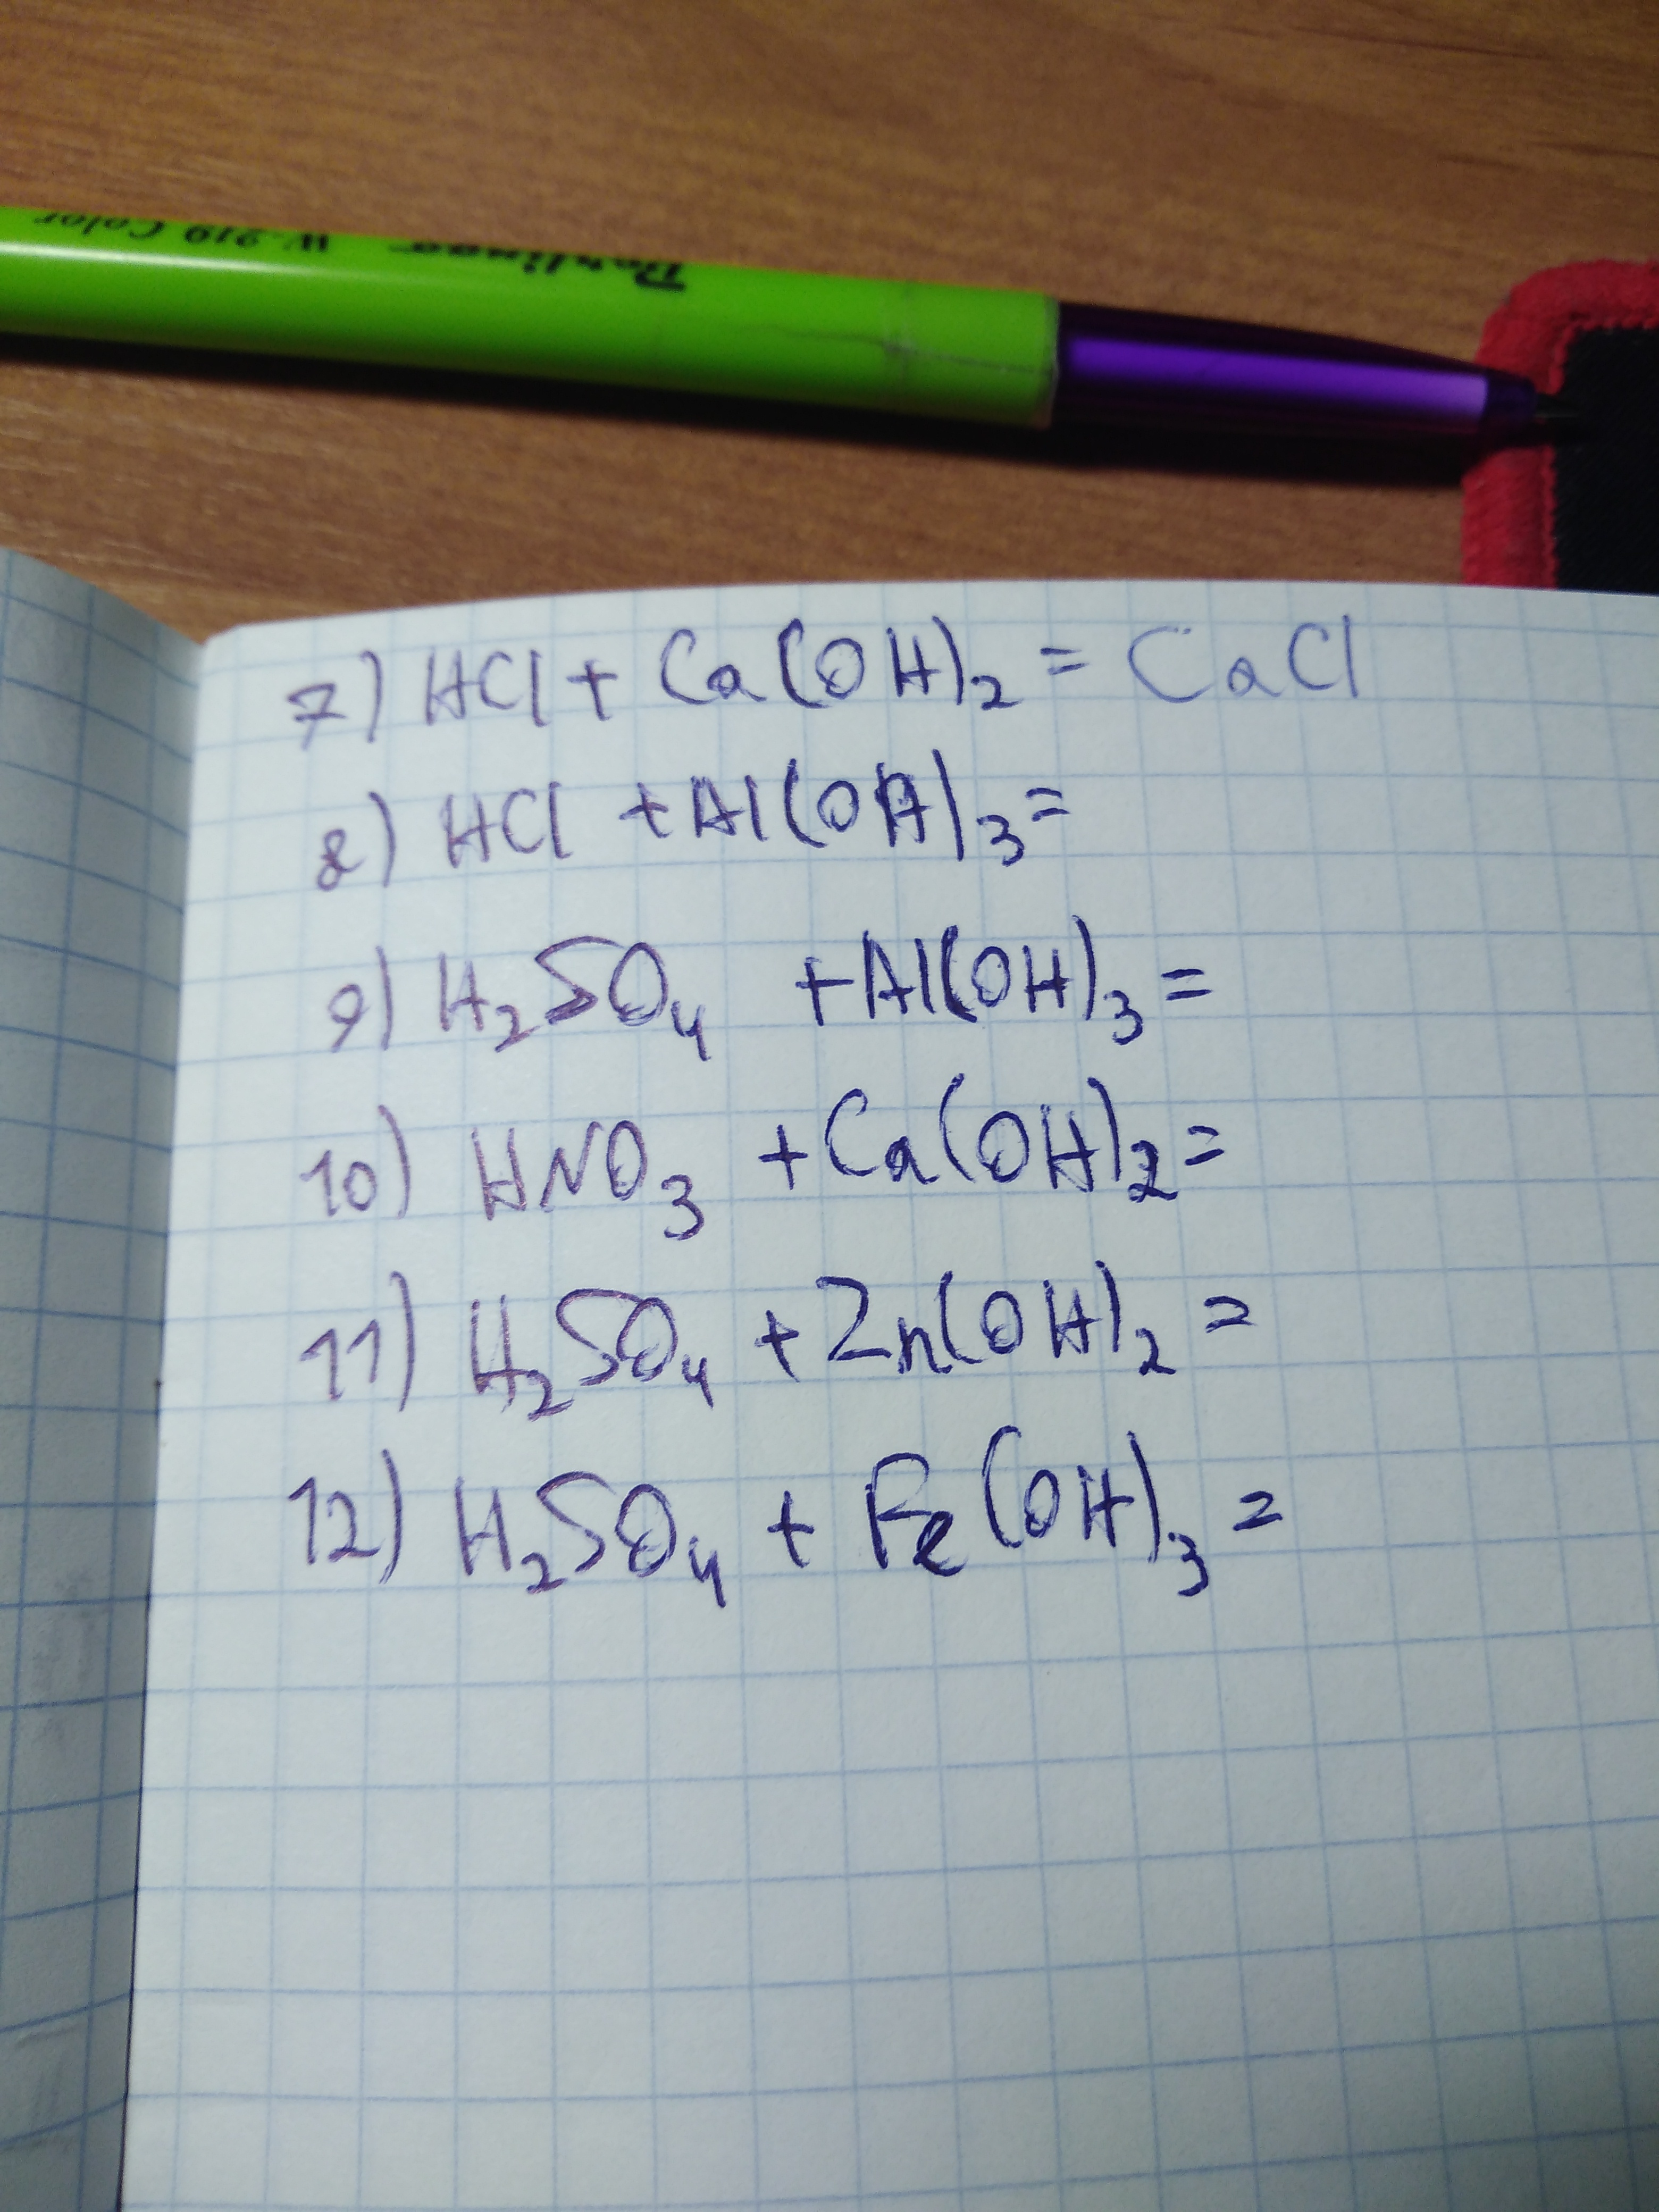 Berlingo W-219 Color
7) HCl + Ca(OH)₂ = CaCl
8) HCl + Al(OH)₃ =
9) H₂SO₄ + Al(OH)₃ =
10) HNO₃ + Ca(OH)₂ =
11) H₂SO₄ + Zn(OH)₂ =
12) H₂SO₄ + Fe(OH)₃ =